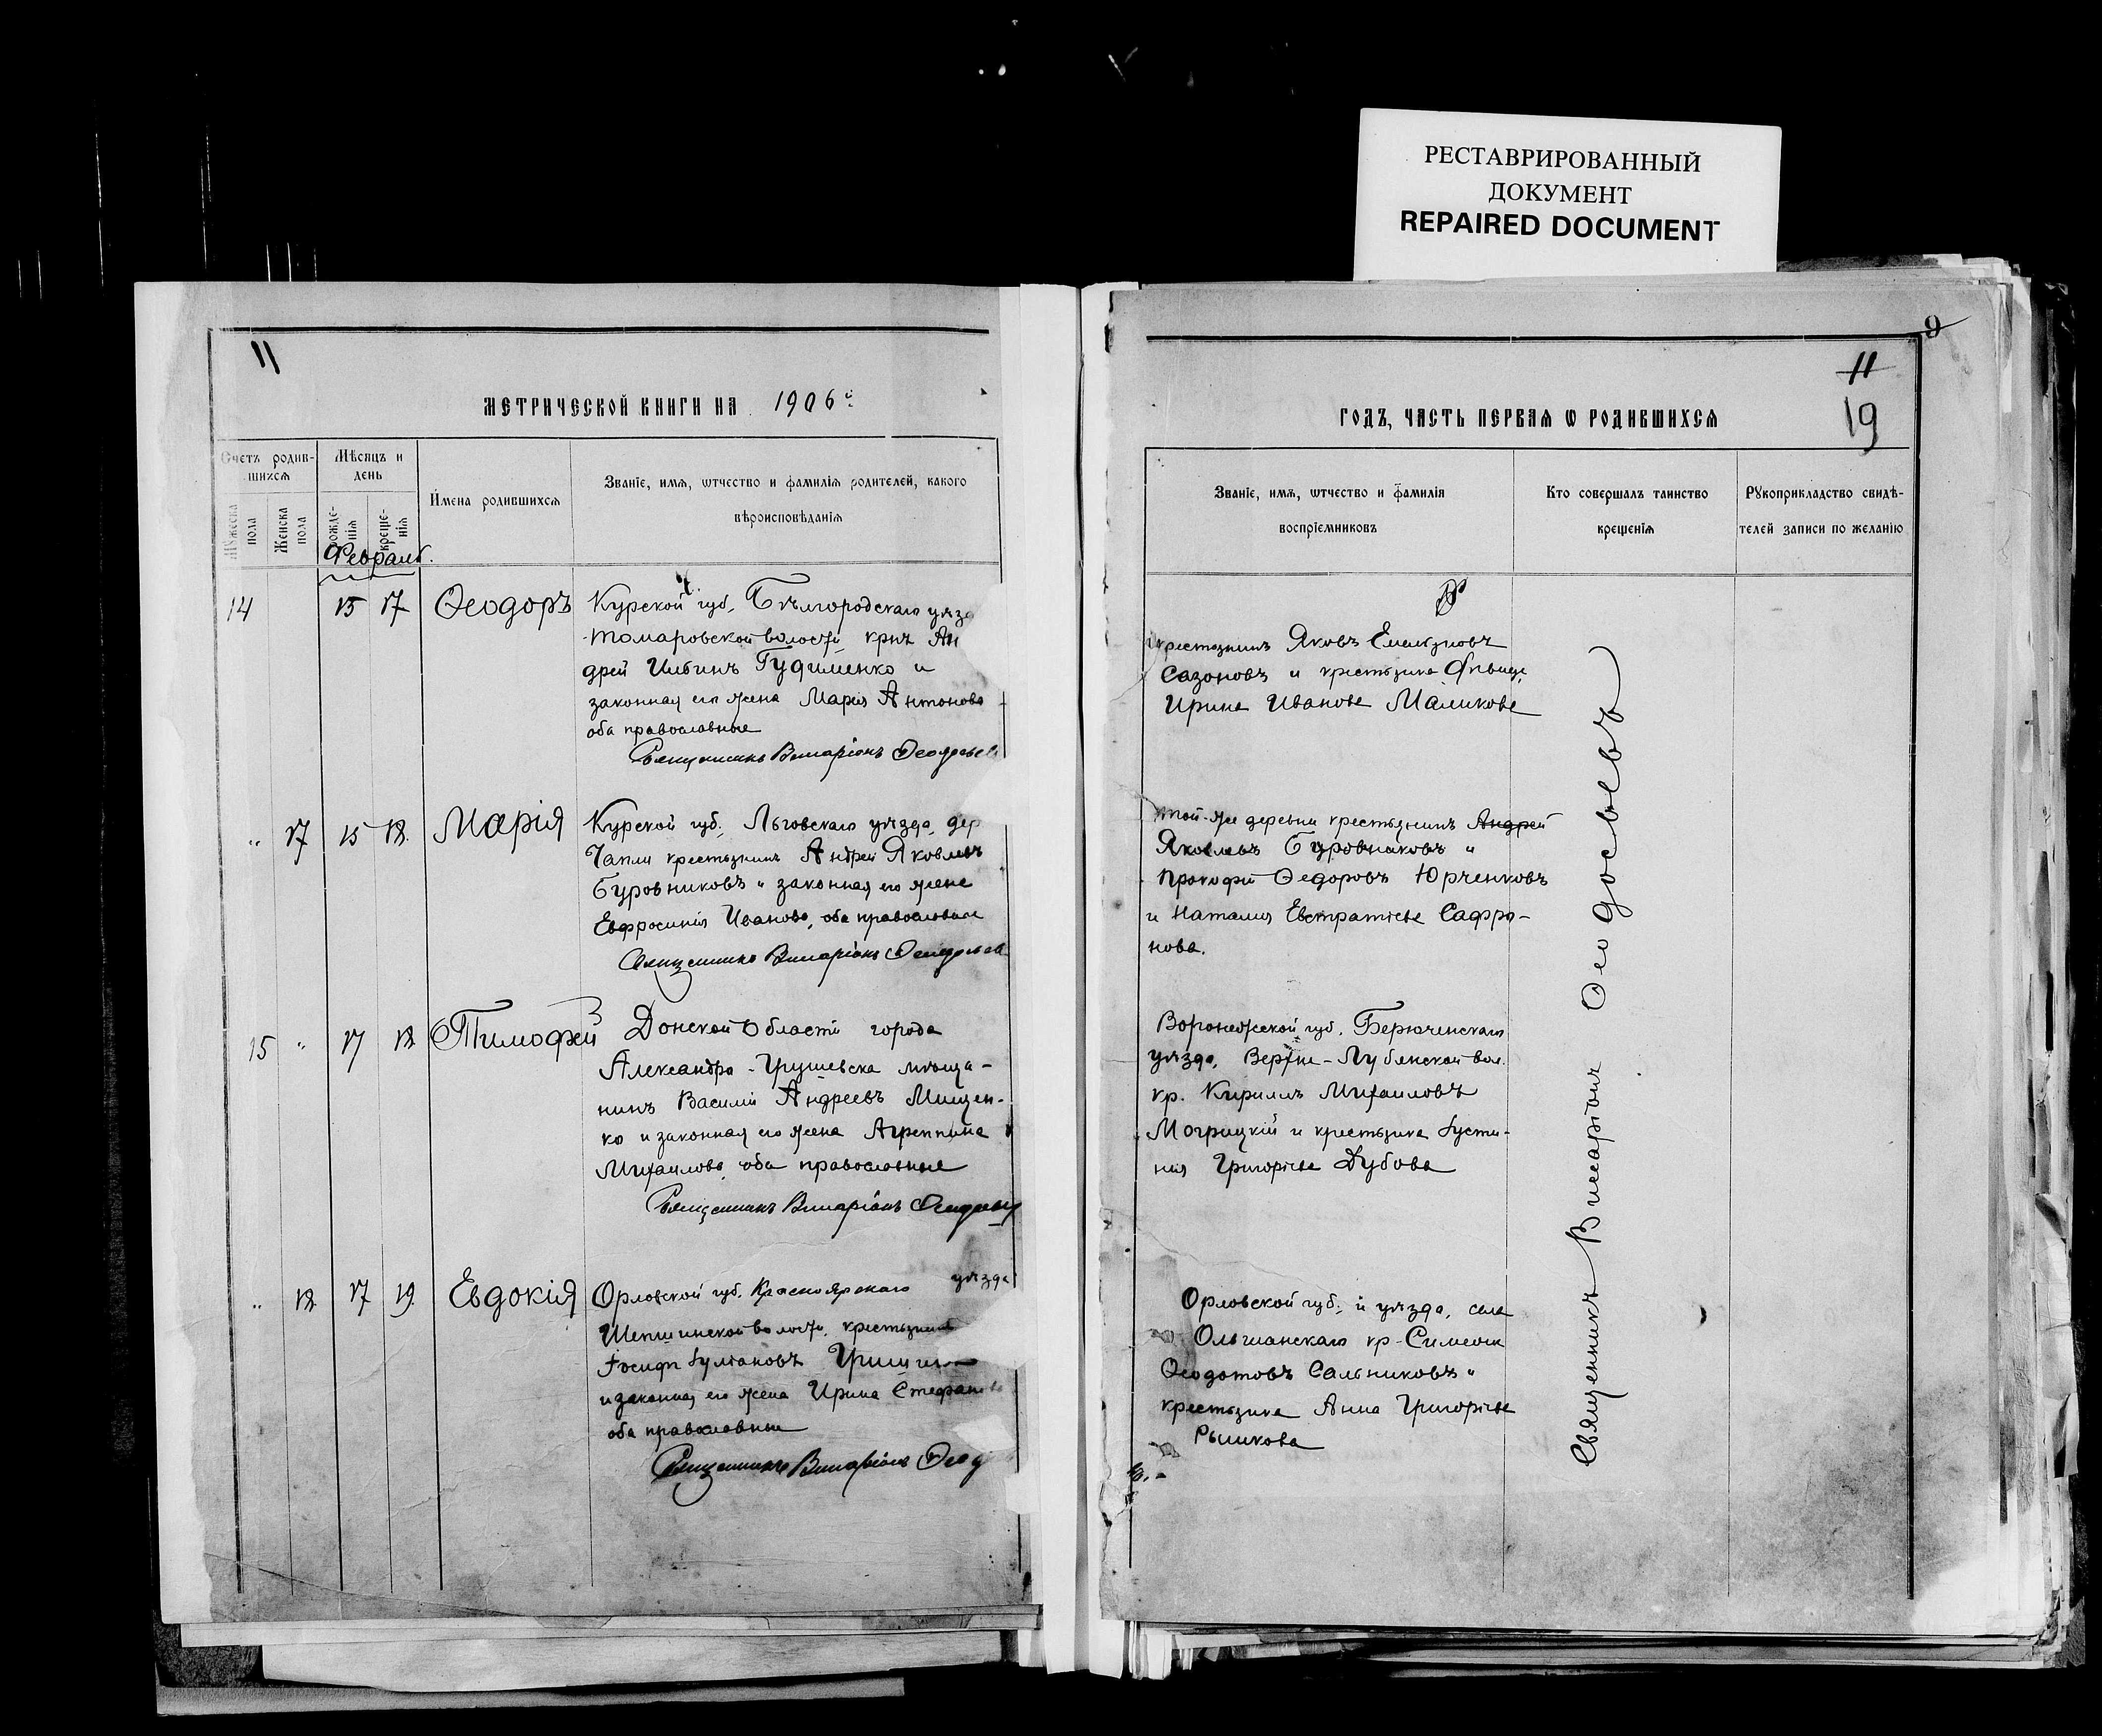 РЕСТАВРИРОВАННЫЙ
ДОКУМЕНТ
REPAIRED DOCUMENT
11
МЕТРИЧЕСКОЙ КНИГИ НА 1906
Счетъ родив-
шихсѧ
Мѣсяцъ и
день
Мꙋжеска
пола
Женска
пола
рожде-
нїѧ
креще-
нїѧ
Имена родившихсѧ
Званїе, имѧ, ѡтчество и фамилїѧ родителей, какого
вѣроисповѣданїѧ
Февраль.
14 15 17 Ѳеодоръ
Курской губ, Бѣлгородскаго уѣзд
Томаровской волости кр-нъ Ан
дрей Ильинъ Гудименко и
законная его жена Мария Антонова
оба православные
Священникъ Виссаріонъ Ѳеодосьев
" 17 15 18. Марія
Курской губ. Льговскаго уѣзда, дер
Чапли крестьянинъ Андрей Яковлевъ
Буровниковъ и законная его жена
Евфросинія Иванова, оба православные
Священникъ Виссаріонъ Ѳеодосьев
15 " 17 18 Тимофей
Донской Области города
Александро-Грушевска мѣща-
нинъ Василій Андреевъ Мищен-
ко и законная его жена Агреппина
Михаилова, оба православные
Священникъ Виссаріонъ Ѳеодосьев
" 18. 17 19. Евдокія
Орловской губ. Красноярскаго уѣзда
волости, крестьянинъ
Іосифъ Іуліановъ
и законная его жена Ирина Стефанов
оба православные
Священникъ Виссаріонъ Ѳеод
9
11
19
ГОДЪ, ЧАСТЬ ПЕРВАѦ Ѡ РОДИВШИХСѦ
Званїе, имѧ, ѡтчество и фамилїѧ
воспрїемниковъ
Кто совершалъ таинство
крещенїѧ
Рꙋкоприкладство свидѣ-
телей записи по желанїю
крестьянинъ Яковъ Емельяновъ
Сазоновъ и крестьянка дѣвица
Ирина Иванова Маликова
Той-же деревни крестьянинъ Андрей
Яковлевъ Буровниковъ и
Прокофій Ѳедоровъ Юрченковъ
и Наталия Евстратіева Сафро-
нова.
Воронежской губ. Бирюченскаго
уѣзда, Верхне-Лубянской вол.
кр. Кириллъ Михаиловъ
Могрицкій и крестьянка Іусти-
ния Григоріева Дубова
Орловской губ. и уѣзда, села
Ольшанскаго кр-Симеонъ
Ѳеодотовъ Сальниковъ и
крестьянка Анна Григоріева
Рышкова
Священникъ Виссаріонъ Ѳеодосьевъ